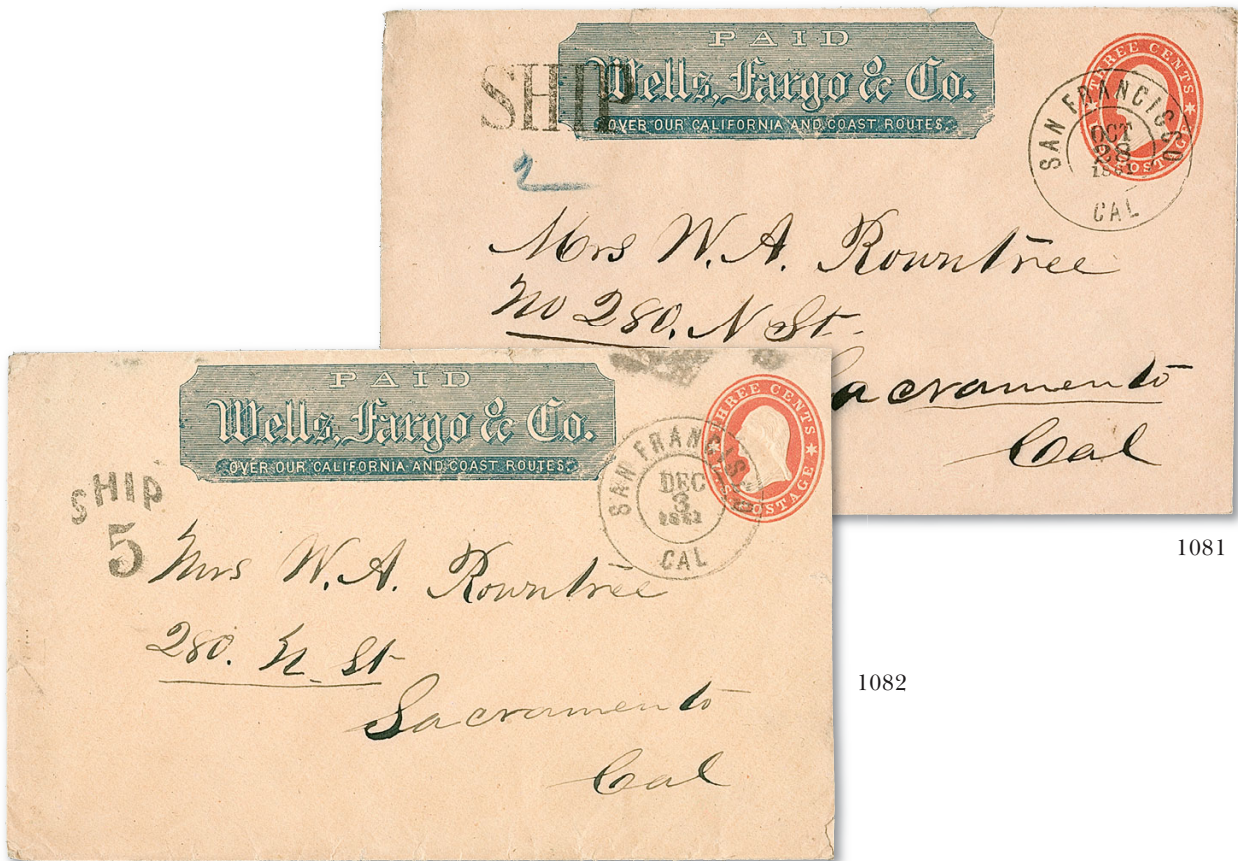 PAID
Wells, Fargo & Co.
OVER OUR CALIFORNIA AND COAST ROUTES
SHIP
2
THREE CENTS
POSTAGE
SAN FRANCISCO
OCT
28
1861
CAL
Mrs W. A. Rowntree
No 280. N St.
Sacramento
Cal
1081
PAID
Wells, Fargo & Co.
OVER OUR CALIFORNIA AND COAST ROUTES
SHIP
5
THREE CENTS
POSTAGE
SAN FRANCISCO
DEC
3
1861
CAL
Mrs W. A. Rowntree
280. N. St
Sacramento
Cal
1082